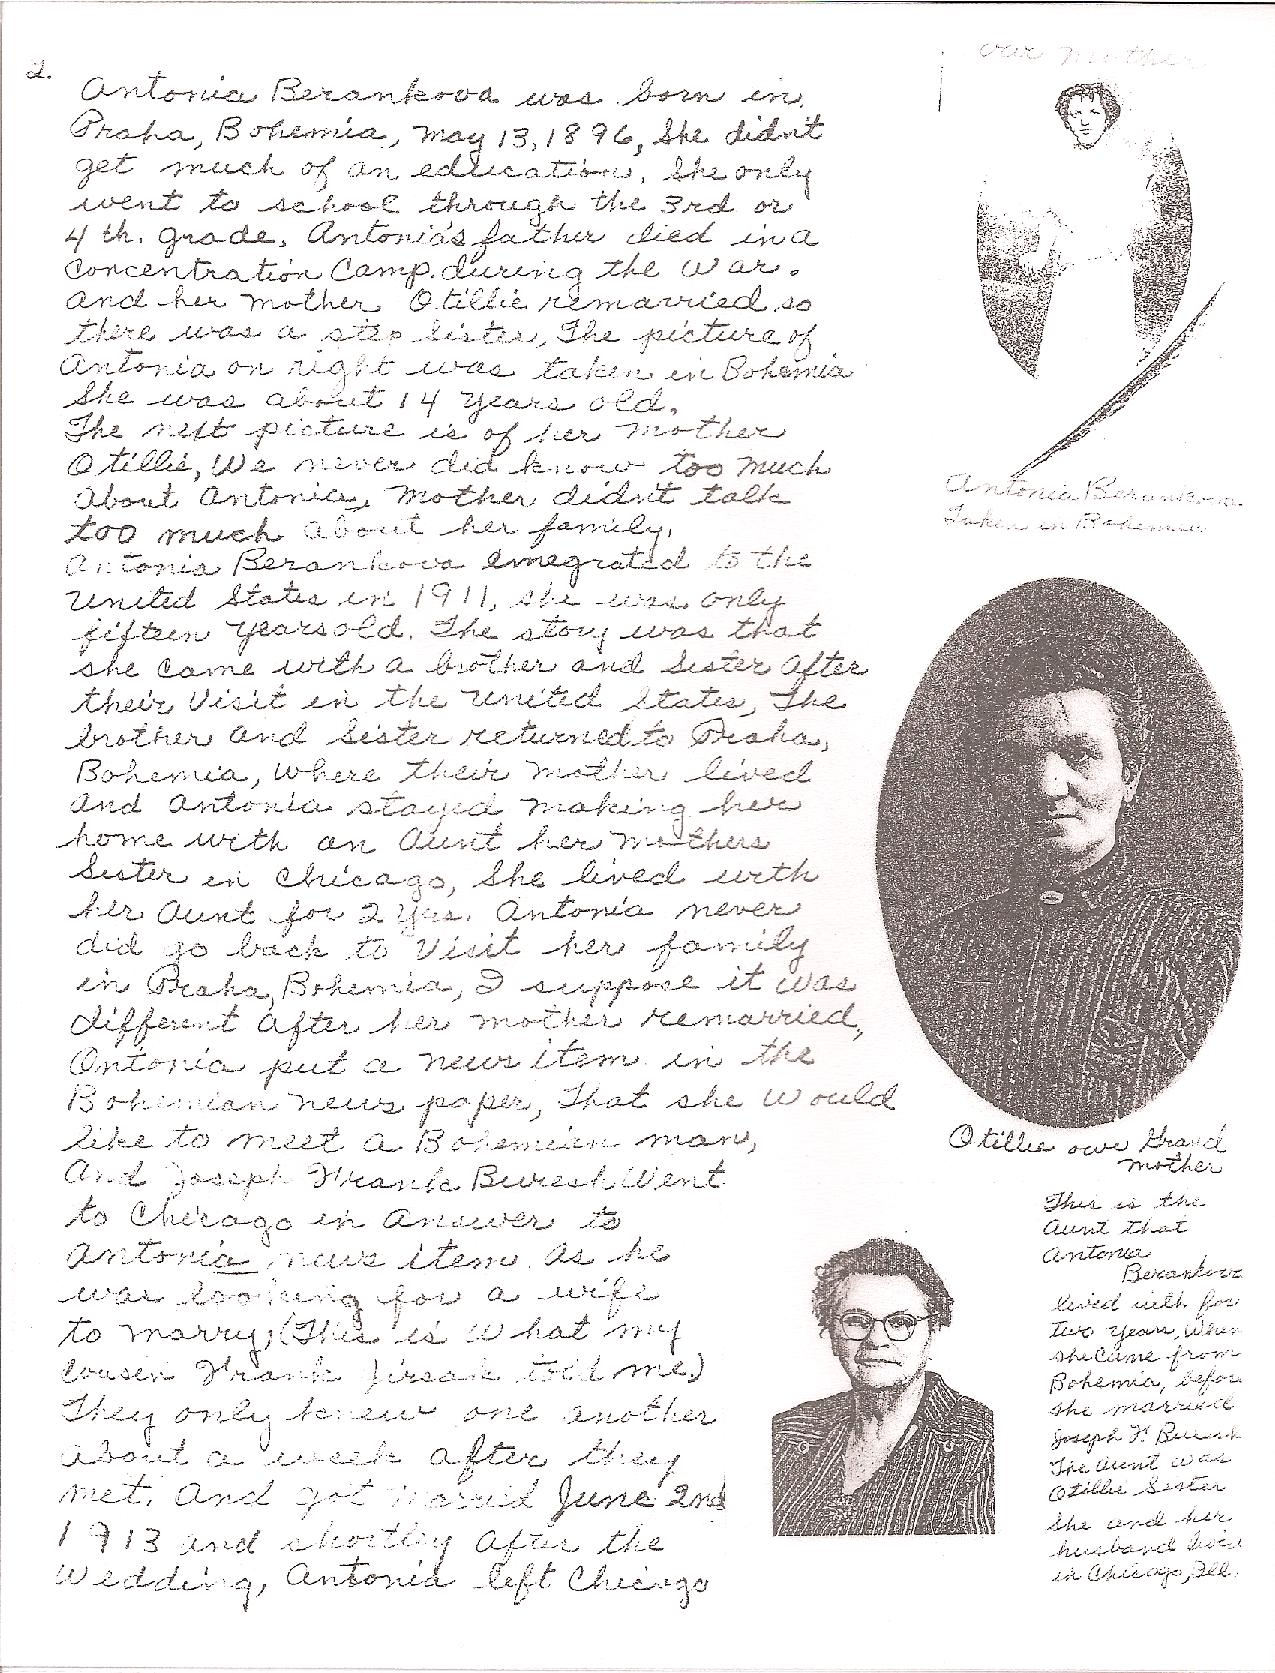 2.
Antonia Berankova was born in
Praha, Bohemia, May 13, 1896, She didn't
get much of an education, She only
went to school through the 3rd or
4th. grade, Antonia's father died in a
Concentration Camp during the war.
And her mother Otillie remarried so
there was a step sister, The picture of
Antonia on right was taken in Bohemia
She was about 14 years old.
The next picture is of her mother
Otillie, We never did know too much
About Antonia, Mother didn't talk
too much about her family.
Antonia Berankova emegrated to the
United States in 1911, she was only
fifteen years old. The story was that
she came with a brother and sister After
their Visit in the United States, The
brother and sister returned to Praha,
Bohemia, where their mother lived
and Antonia stayed making her
home with an Aunt her mothers
Sister in Chicago, She lived with
her Aunt for 2 yrs. Antonia never
did go back to Visit her family
in Praha, Bohemia, I suppose it was
different after her mother remarried,
Antonia put a news item in the
Bohemian news paper, That she would
like to meet a Bohemian man,
And Joseph Frank Buresh Went
to Chicago in answer to
Antonia news item. as he
was looking for a wife
to marry, (This is what my
Cousin Frank Jirsak told me)
They only knew one another
about a week after they
met. And got married June 2nd
1913 and shortley after the
Wedding, Antonia left Chicago
our mother
Antonia Berankova
Taken in Bohemia
Otillie our Grand
mother
This is the
Aunt that
Antonia
Berankova
lived with for
two years, When
she came from
Bohemia, before
she married
Joseph F. Buresh
The Aunt was
Otillie Sister
She and her
husband lived
in Chicago, Ill.